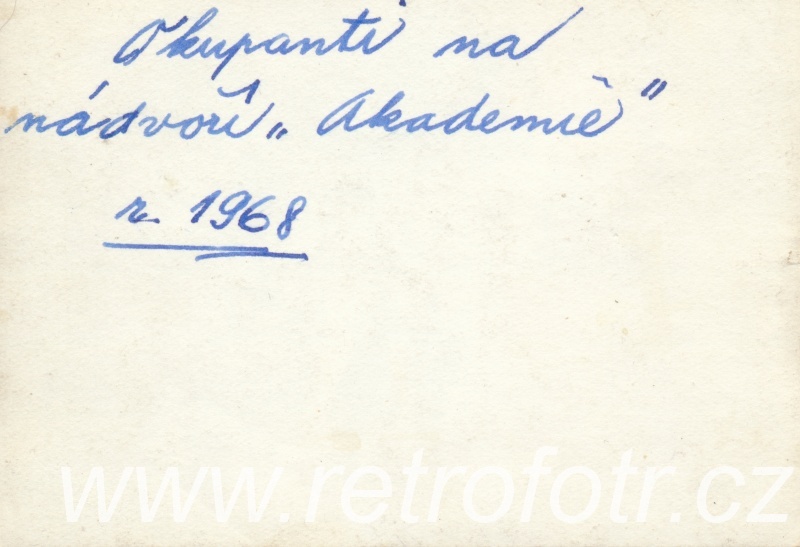 Okupanti na
nádvoří „Akademiě"
r. 1968
www.retrofotr.cz